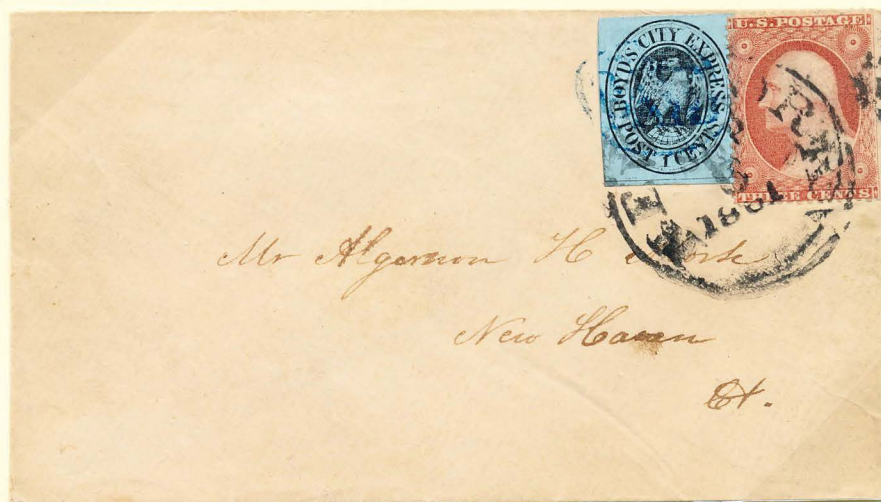 BOYD'S CITY EXPRESS
POST 1 CENTS
U.S. POSTAGE
THREE CENTS
1861
Mr Algernon H
New Haven
Ct.